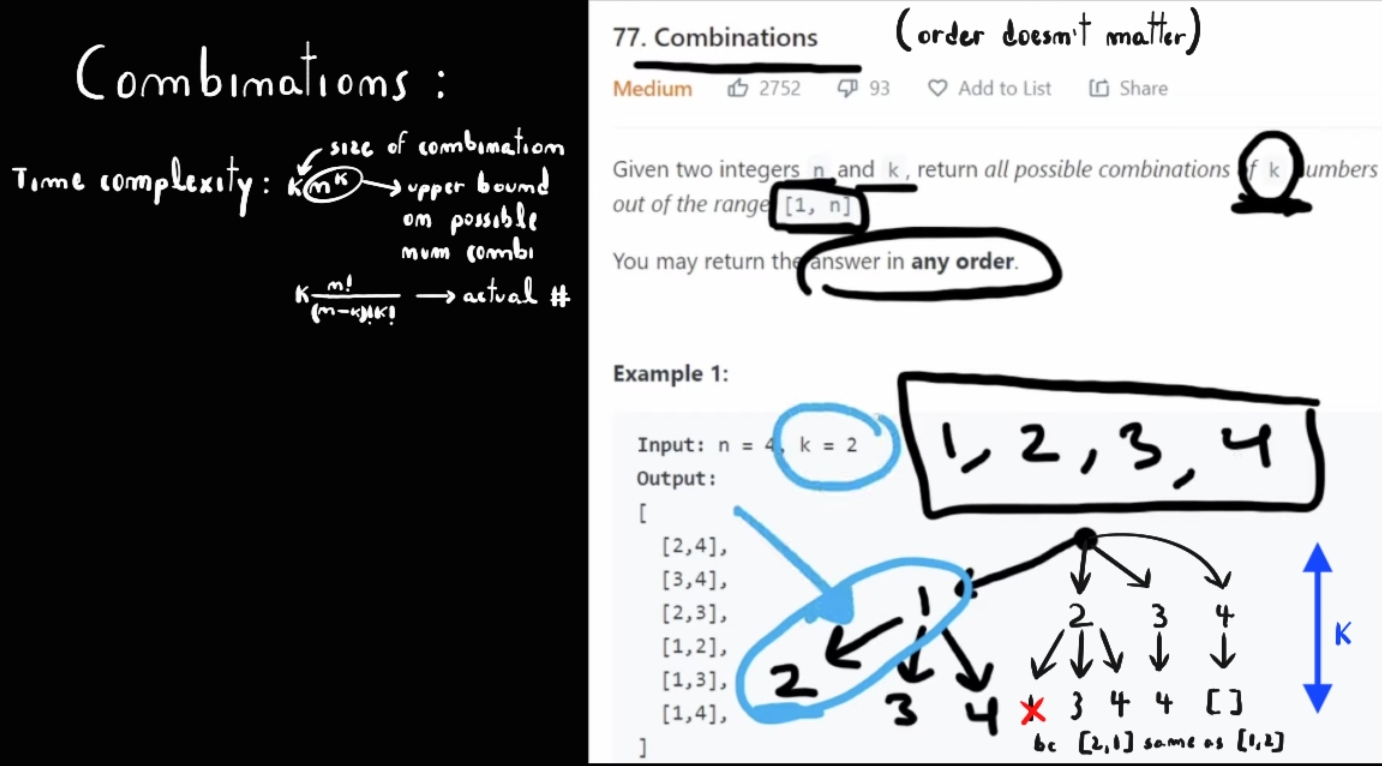 Combinations :
Time complexity : K n^K
size of combination
upper bound
on possible
num combi
K n! / (n-K)!K! → actual #
77. Combinations
(order doesn't matter)
Medium 2752 93 Add to List Share
Given two integers n and k, return all possible combinations of k umbers
out of the range [1, n]
You may return the answer in any order.
Example 1:
Input: n = 4, k = 2
1, 2, 3, 4
Output:
[
[2,4],
[3,4],
[2,3],
[1,2],
[1,3],
[1,4],
]
1 2 3 4
2 3 4 3 4 4 []
K
bc [2,1] same as [1,2]